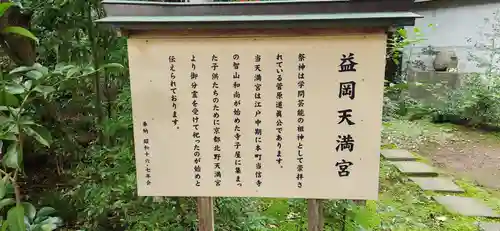 益岡天満宮
祭神は学問芸能の祖神として崇拝さ
れている菅原道真公であります。
当天満宮は江戸中期に本町当信寺
の智山和尚が始めた寺子屋に集まっ
た子供たちのために京都北野天満宮
より御分霊を受けて祀ったのが始めと
伝えられております。
奉納 昭和十六・七年会